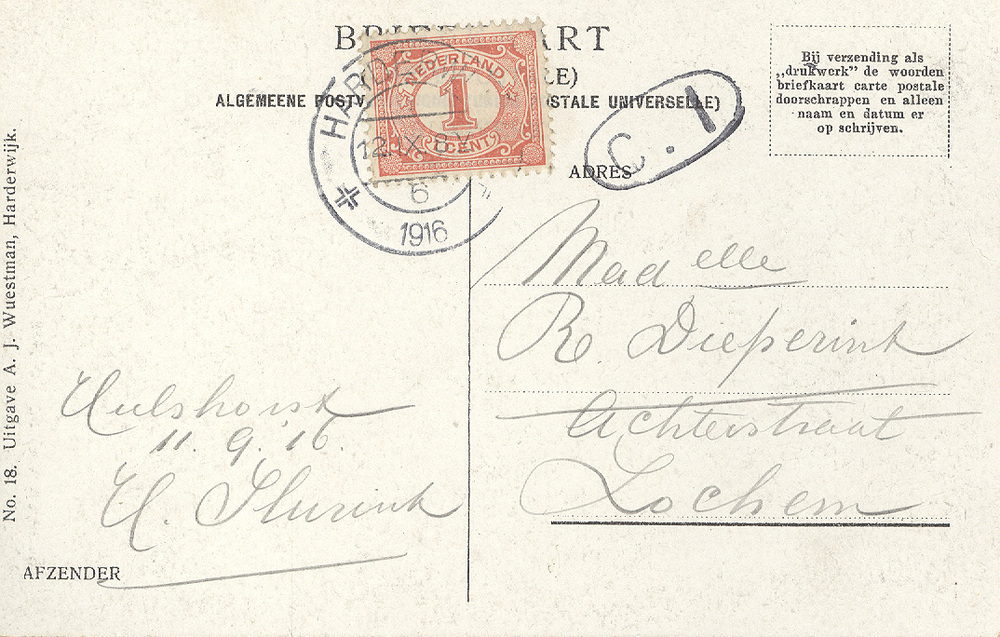 BRIEFKAART
ALGEMEENE POSTV
POSTALE UNIVERSELLE)
NEDERLAND
1
1 CENT
HARDE
12.IX. 8 V
6
1916
C. 1
Bij verzending als
„drukwerk" de woorden
briefkaart carte postale
doorschrappen en alleen
naam en datum er
op schrijven.
ADRES
Mad elle
R. Dieperink
Achterstraat
Lochem
Hulshorst
11.9.'16.
AFZENDER
No. 18. Uitgave A. J. Wuestman, Harderwijk.